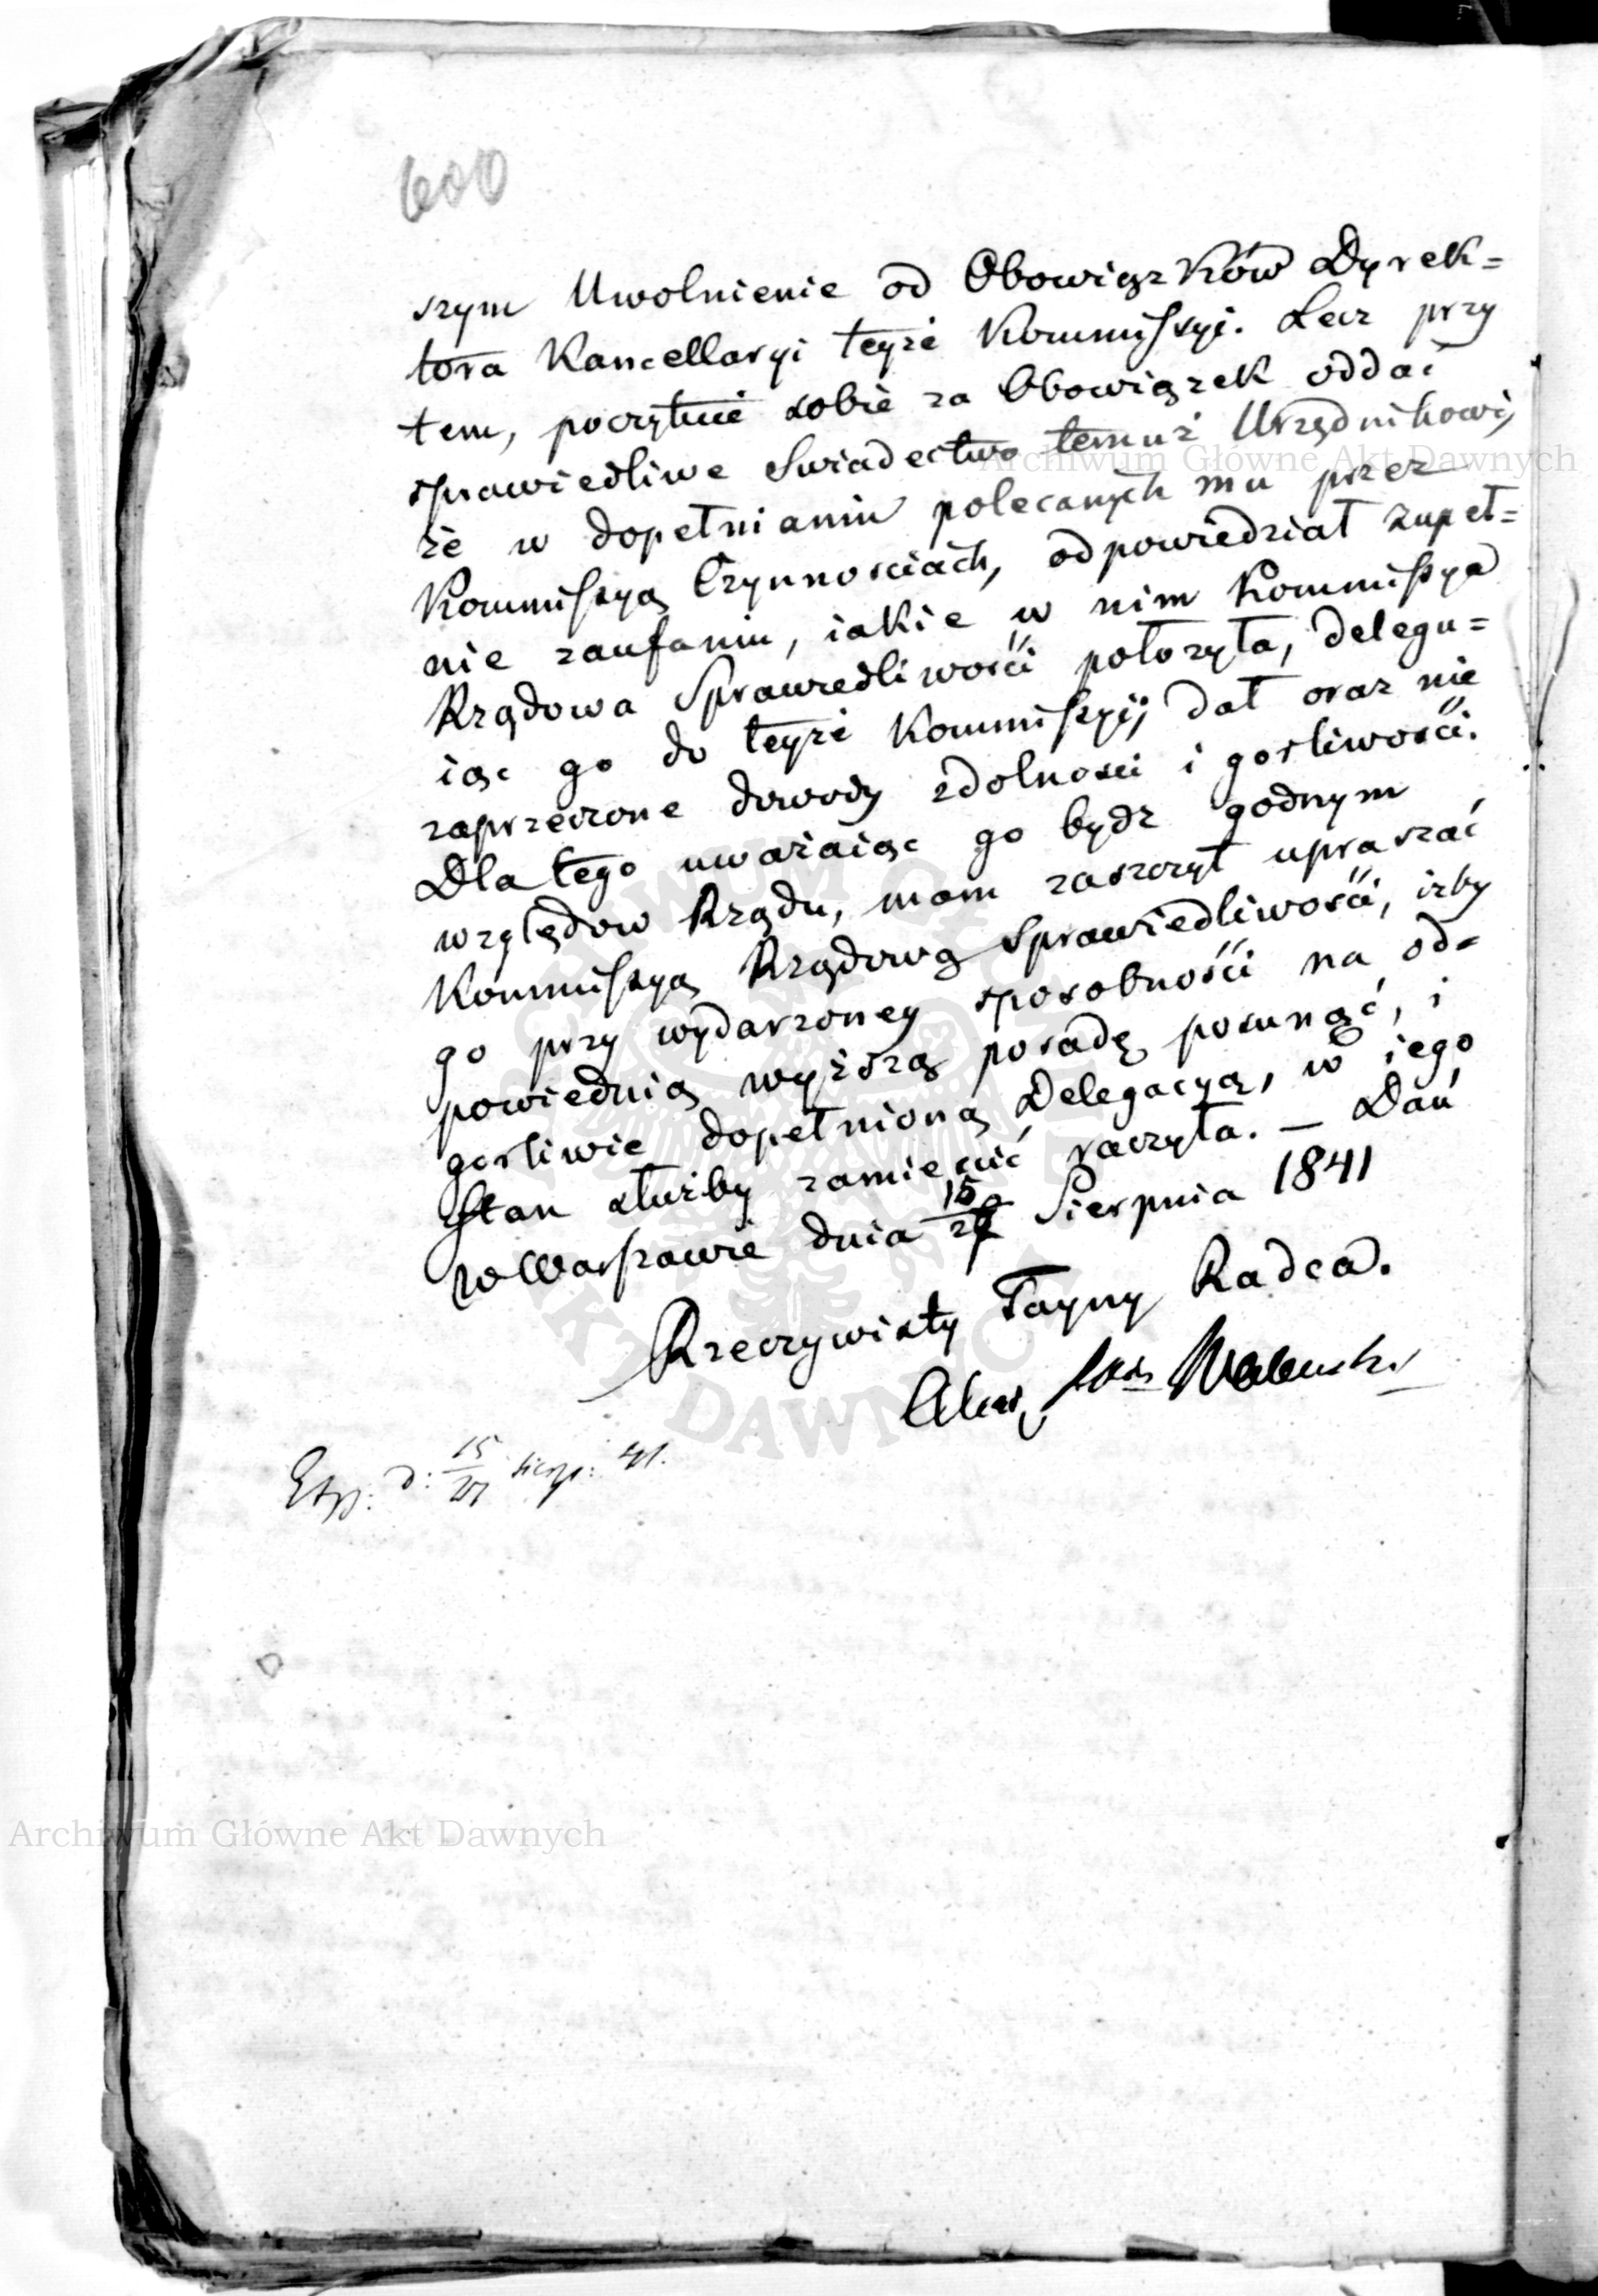 600
szym Uwolnienie od Obowiązków Dyrek=
tora Kancellaryi teyże Kommissyi. Lecz przy
tem, poczytuie sobie za Obowiązek oddać
sprawiedliwe Swiadectwo temuż Urzędnikowi,
że w dopełnianiu polecanych mu przez
Kommissyą Czynnościach, odpowiedział zupeł=
nie zaufaniu, iakie w nim Kommissya
Rządowa Sprawiedliwości położyła, delegu=
iąc go do teyże Kommissyi; dał oraz nie
zaprzeczone dowody zdolności i gorliwości.
Dla tego uważaiąc go bydz godnym
względow Rządu, mam zaszczyt upraszać
Kommissyą Rządową Sprawiedliwości, iżby
go przy wydarzoney sposobności na od=
powiednią wyższą posadę posunąć, i
gorliwie dopełnioną Delegacyą, w iego
Stan służby zamieścić raczyła. — Dań
w Warszawie dnia 15/27 Sierpnia 1841
Rzeczywisty Tayny Radca.
Alex
Exp: d: 15/27 sierp: 41.
Archiwum Główne Akt Dawnych
Archiwum Główne Akt Dawnych
ARCHIWUM GŁÓWNE AKT DAWNYCH